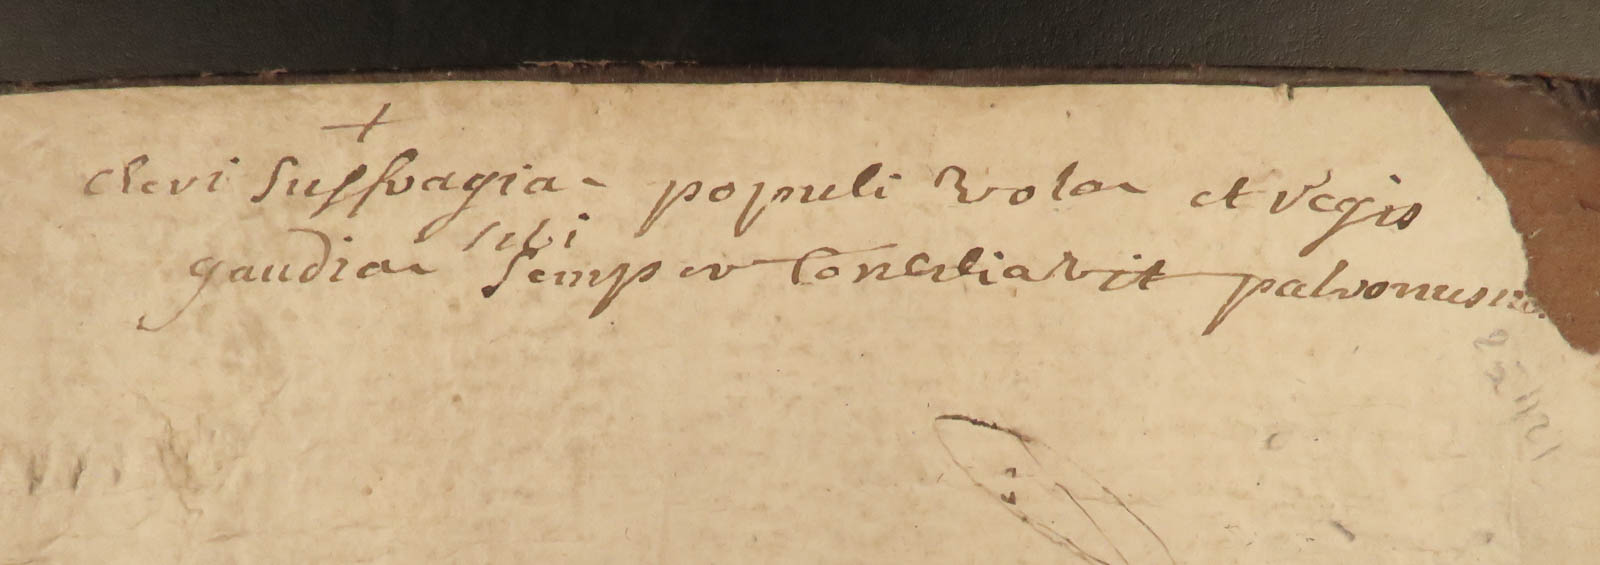 +
cleri suffragia populi vota et regis
sibi
gaudia semper conciliavit patronus